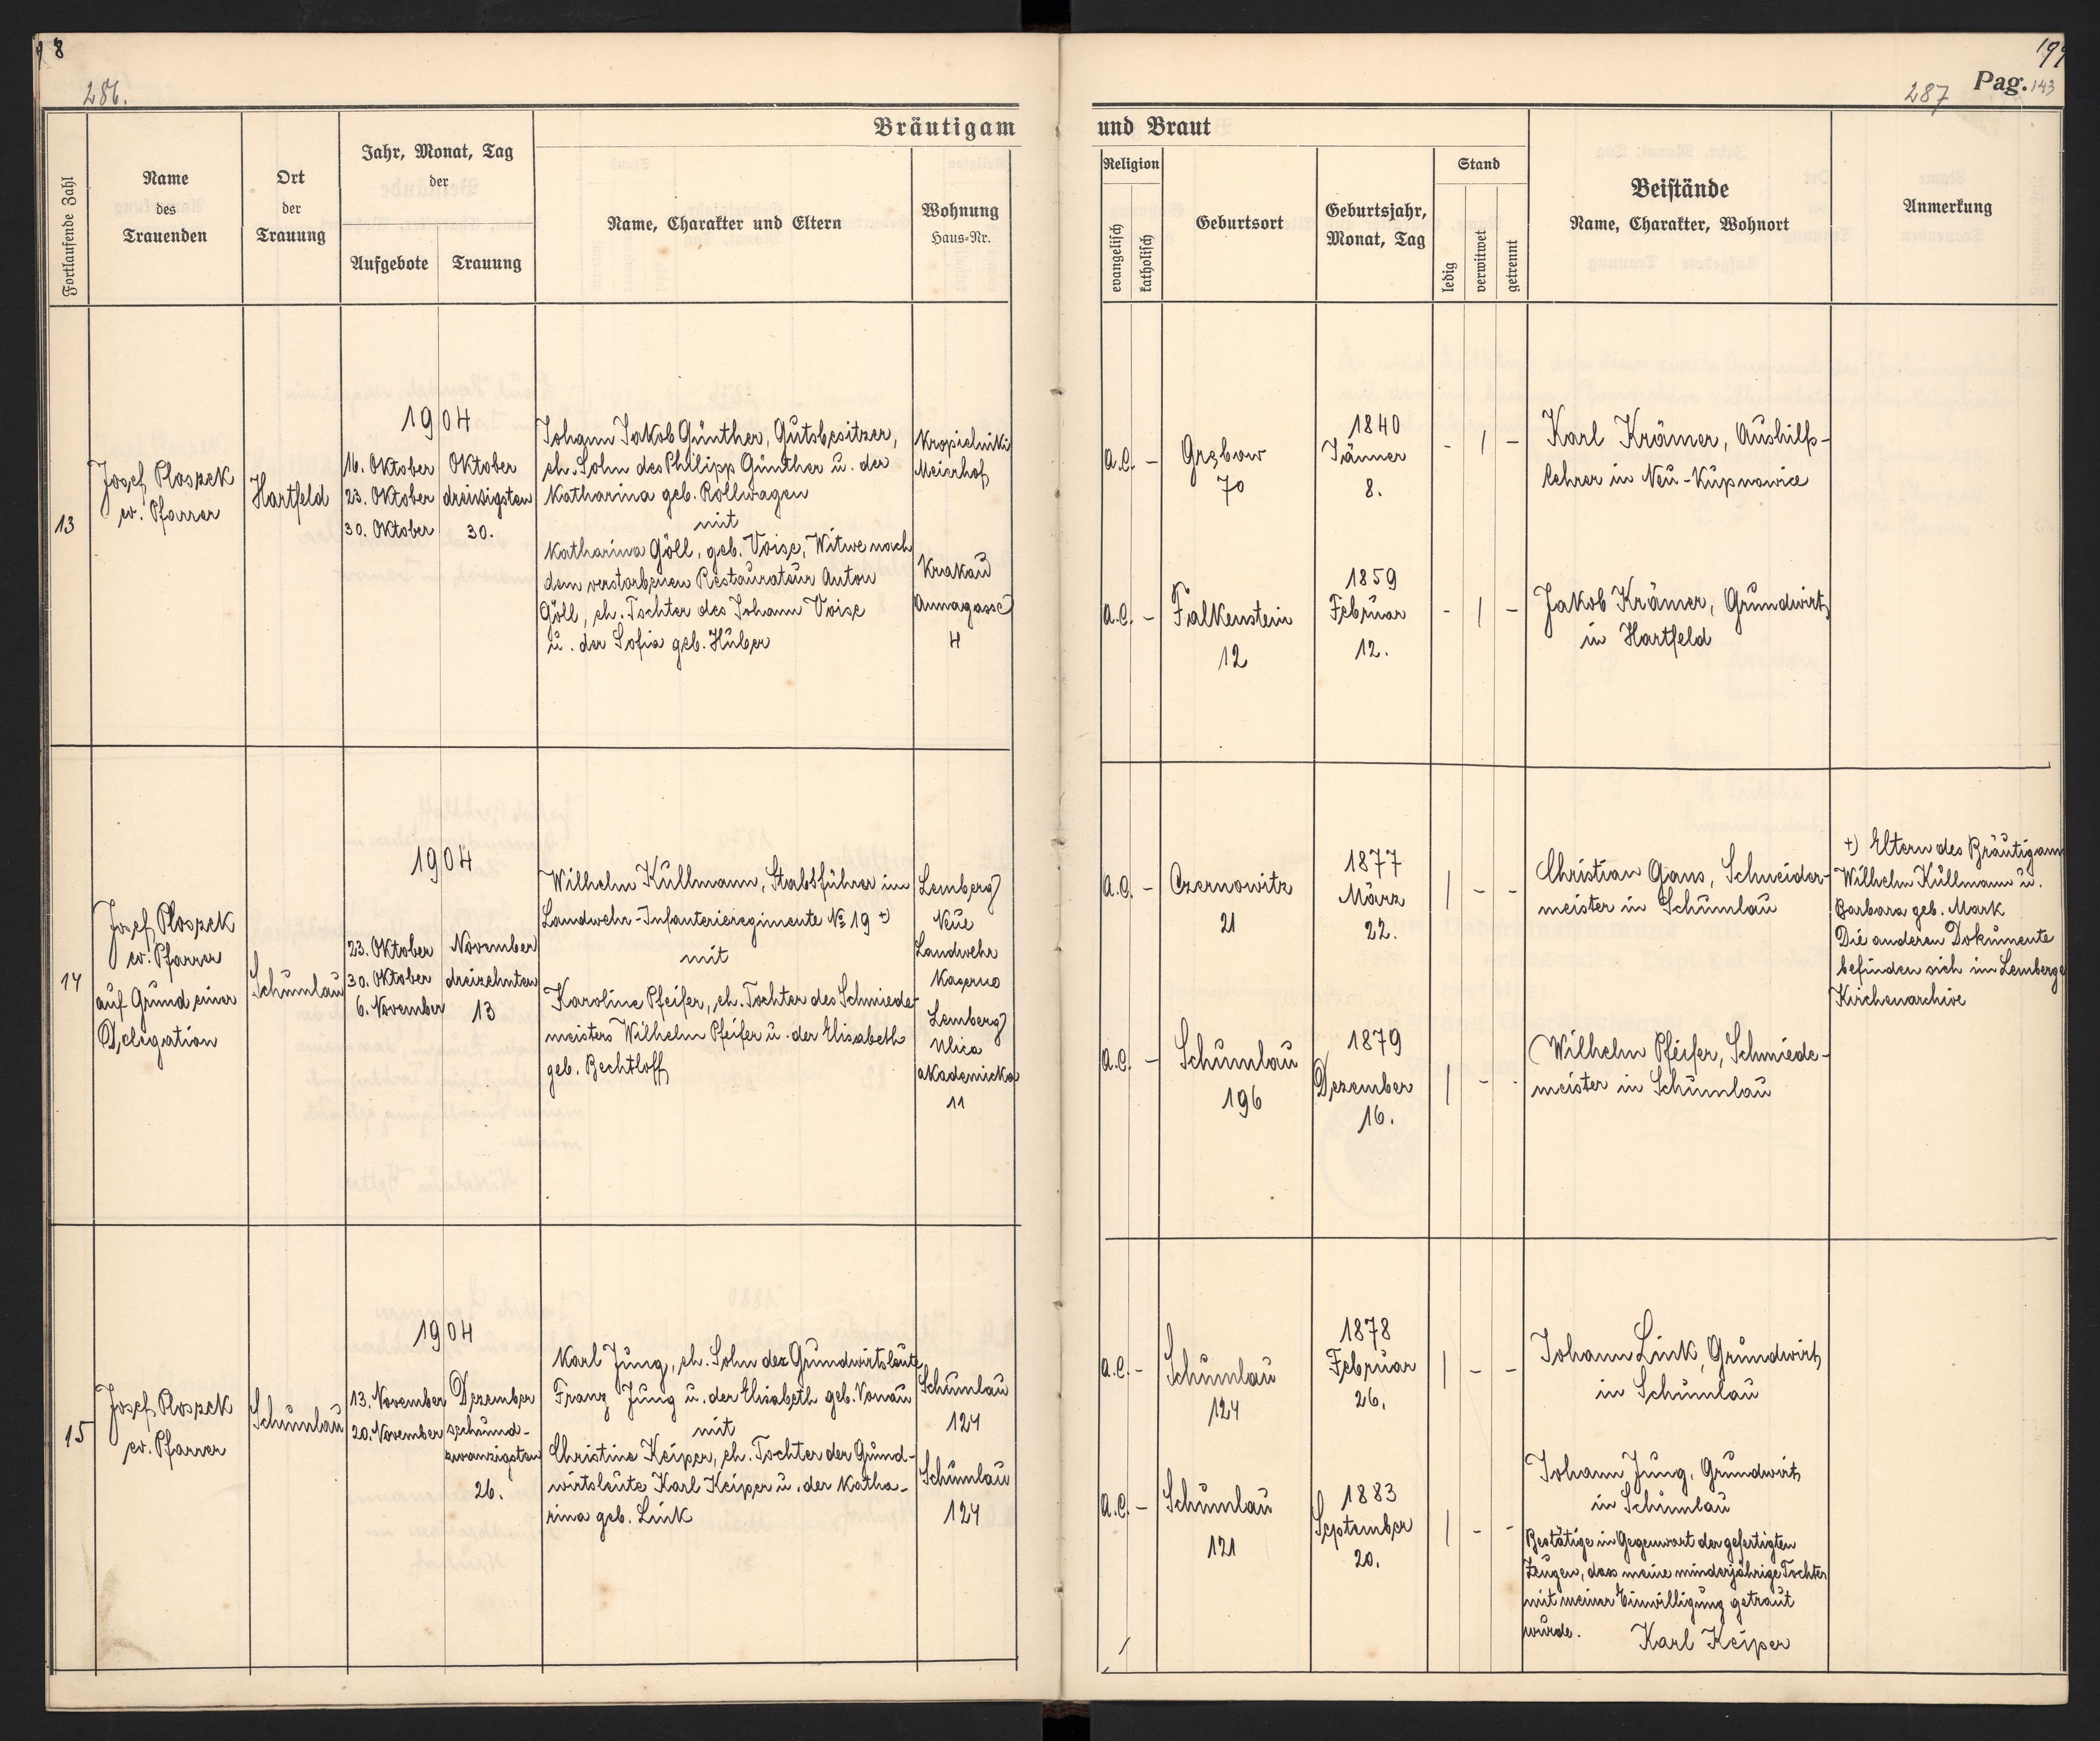 8
286.
Fortlaufende Zahl
Name
des
Trauenden
Ort
der
Trauung
Jahr, Monat, Tag
der
Aufgebote
Trauung
Bräutigam
Name, Charakter und Eltern
Wohnung
Haus=Nr.
13
Josef Ploszek
ev. Pfarrer
Hartfeld
1904
16. Oktober
23. Oktober
30. Oktober
Oktober
dreissigsten
30.
Johann Jakob Günther, Gutsbesitzer,
eh. Sohn des Philipp Günther u. der
Katharina geb. Rollwagen
mit
Katharina Göll, geb. Voise, Witwe nach
dem verstorbenen Restaurateur Anton
Göll, eh. Tochter des Johann Voise
u. der Sofia geb. Huber
Kropielniki
Meierhof
Krakau
Annagasse
4
14
Josef Ploszek
ev. Pfarrer
auf Grund einer
Delegation
Schumlau
1904
23. Oktober
30. Oktober
6. November
November
dreizehnten
13
Wilhelm Kullmann, Stabsführer im
Landwehr-Infanterieregimente № 19 +)
mit
Karoline Pfeifer, eh. Tochter des Schmiede-
meisters Wilhelm Pfeifer u. der Elisabeth
geb. Bechtloff
Lemberg
Neue
Landwehr
Kaserne
Lemberg
Ulica
akademicka
11
15
Josef Ploszek
ev. Pfarrer
Schumlau
1904
13. November
20. November
Dezember
sechsund-
zwanzigsten
26.
Karl Jung, eh. Sohn der Grundwirtsleute
Franz Jung u. der Elisabeth geb. Vonau
mit
Christine Keiper, eh. Tochter der Grund-
wirtsleute Karl Keiper u. der Katha-
rina geb. Link
Schumlau
124
Schumlau
124
199
287
Pag. 143
und Braut
Religion
evangelisch
katholisch
Geburtsort
Geburtsjahr,
Monat, Tag
Stand
ledig
verwitwet
getrennt
Beistände
Name, Charakter, Wohnort
Anmerkung
A.C. -
Grzbow
70
1840
Jänner
8.
- 1 -
Karl Krämer, Aushilfs-
lehrer in Neu-Kupnowice
A.C. -
Falkenstein
12
1859
Februar
12.
- 1 -
Jakob Krämer, Grundwirt
in Hartfeld
A.C. -
Czernowitz
21
1877
März
22.
1 - -
Christian Gans, Schneider-
meister in Schumlau
+) Eltern des Bräutigam
Wilhelm Kullmann u.
Barbara geb. Mark
Die anderen Dokumente
befinden sich im Lemberge
Kirchenarchive
A.C. -
Schumlau
196
1879
Dezember
16.
1 - -
Wilhelm Pfeifer, Schmiede-
meister in Schumlau
A.C. -
Schumlau
124
1878
Februar
26.
1 - -
Johann Link, Grundwirt
in Schumlau
A.C. -
Schumlau
121
1883
September
20.
1 - -
Johann Jung, Grundwirt
in Schumlau
Bestätige in Gegenwart der gefertigten
Zeugen, dass meine minderjährige Tochter
mit meiner Einwilligung getraut
wurde.
Karl Keiper